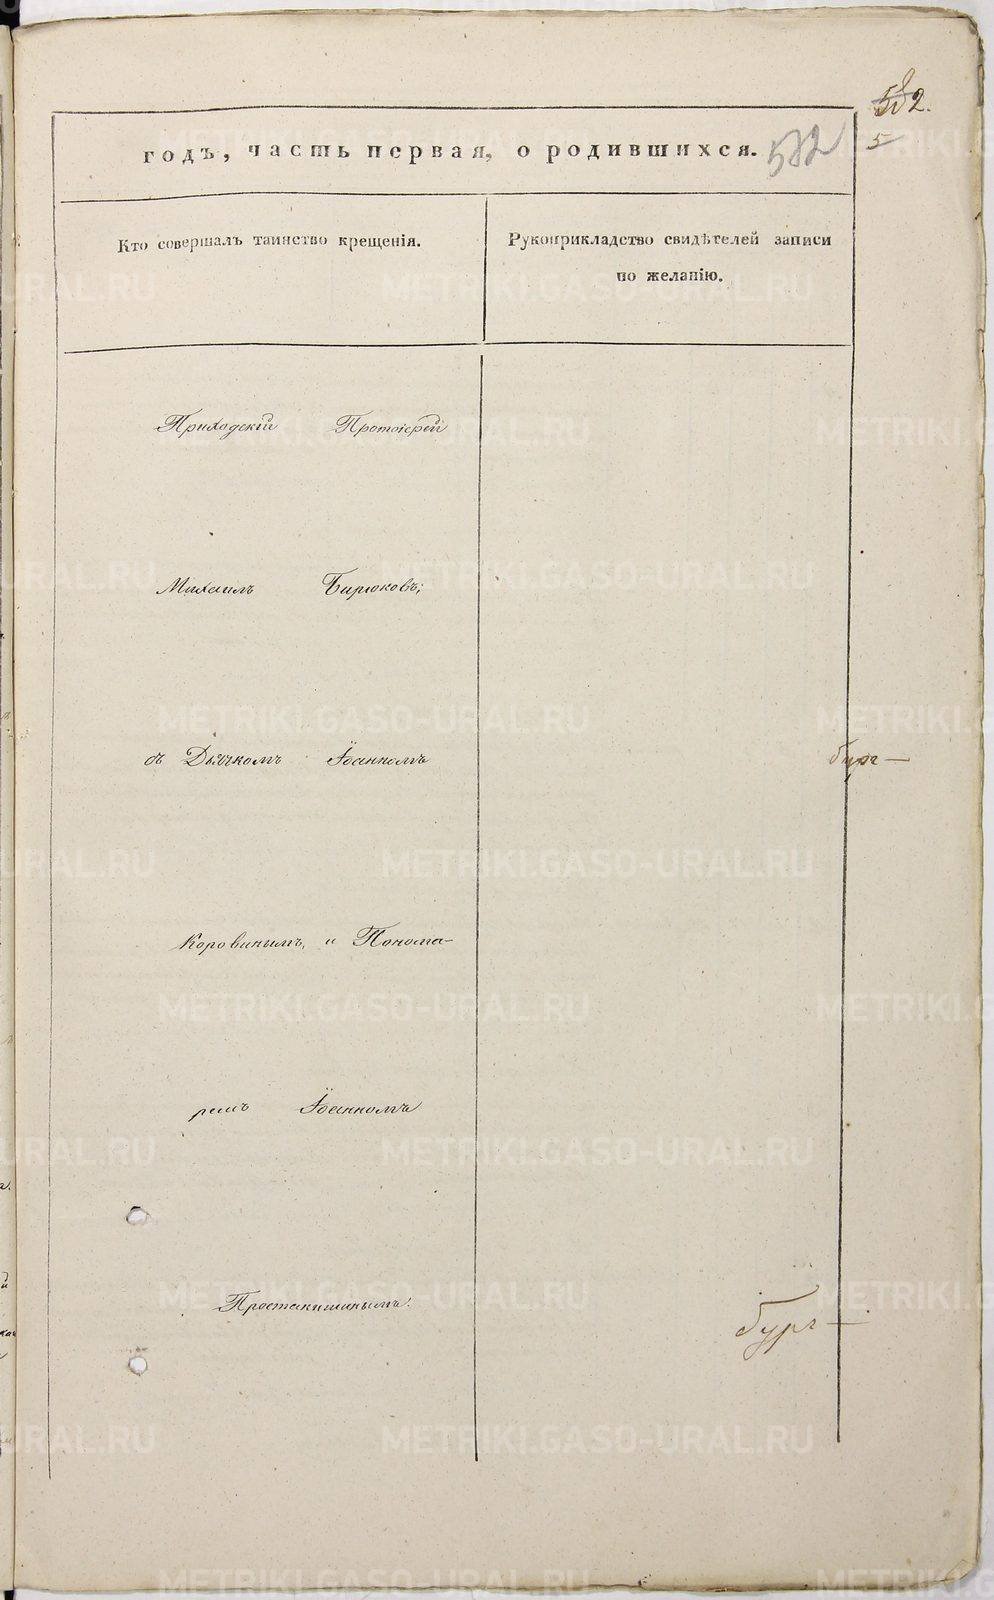 582.
5
годъ, часть первая, о родившихся. 582
Кто совершалъ таинство крещенія.
Рукоприкладство свидѣтелей записи
по желанію.
Приходскій Протоіерей
Михаилъ Бирюковъ;
съ Дьячкомъ Іоанномъ
бург—
Коровинымъ, и Понома-
ремъ Іоанномъ
Простакишинымъ.
бург—
METRIKI.GASO-URAL.RU